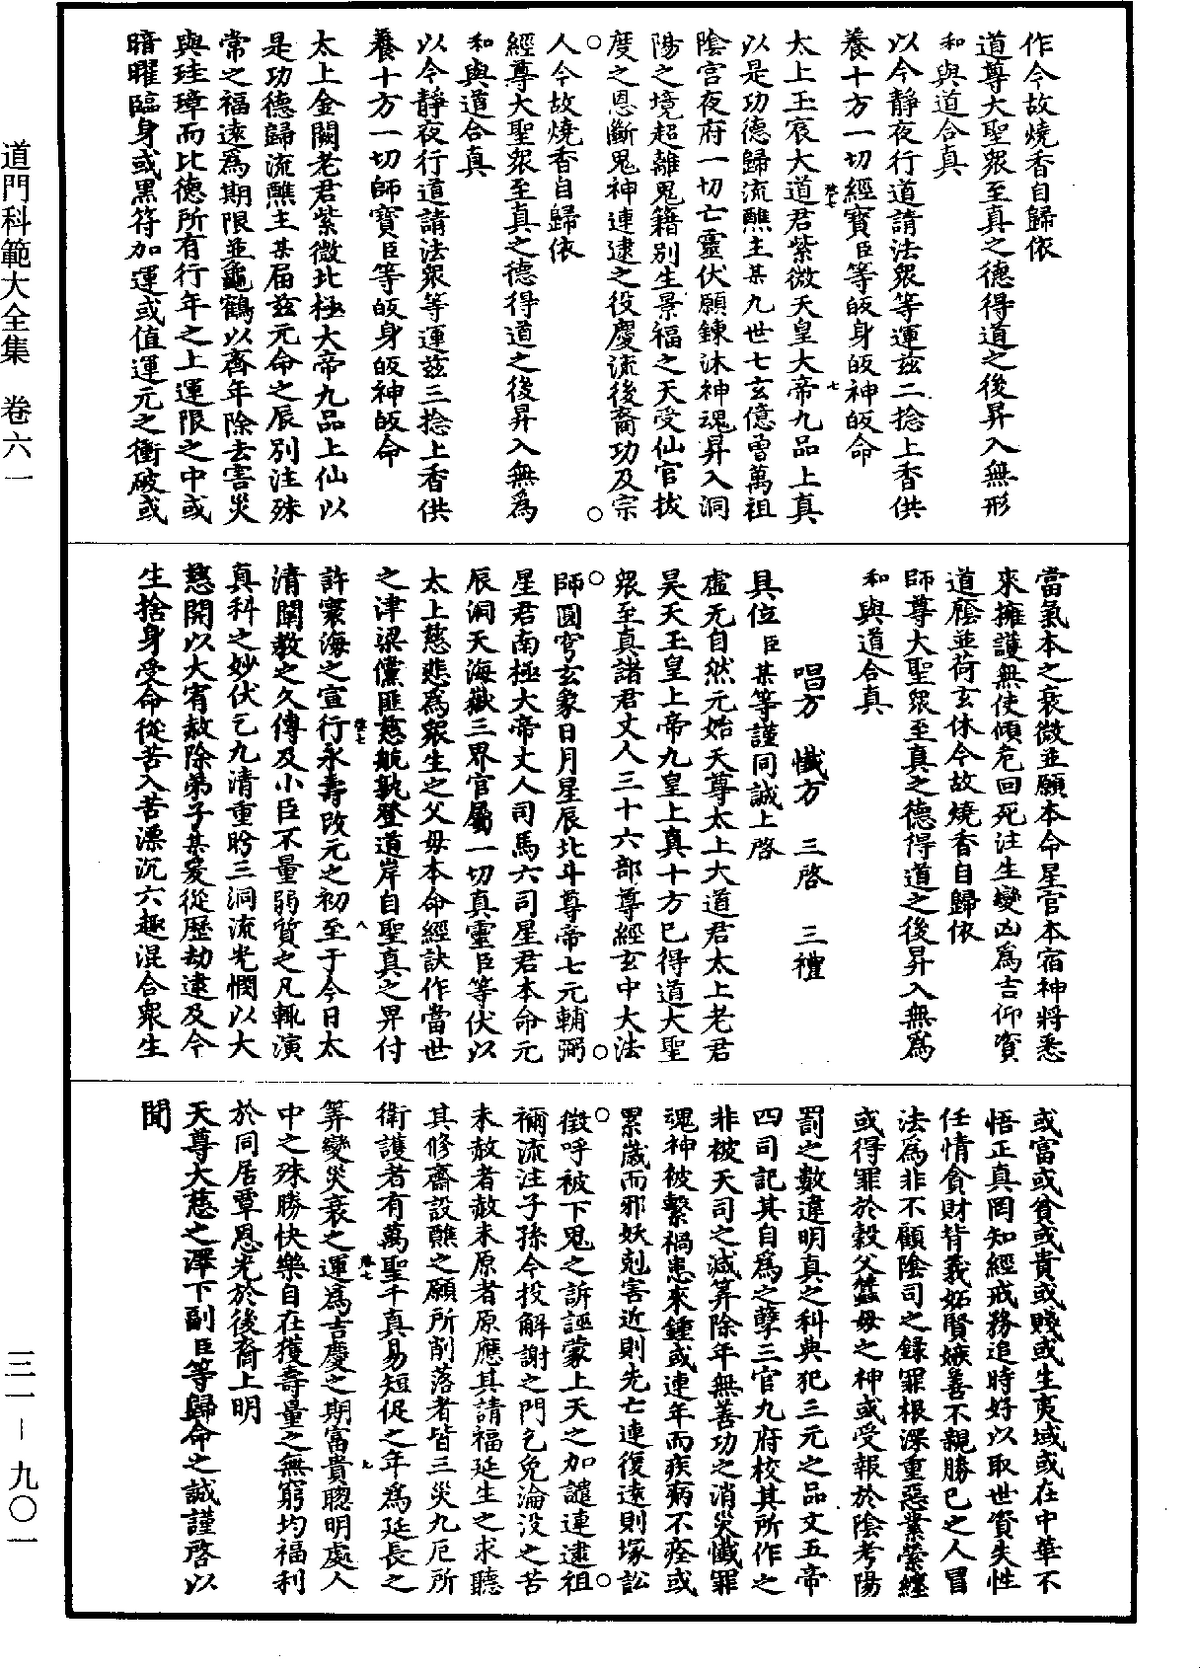 道門科範大全集　卷六一
三一－九〇一
作今故燒香自歸依
道尊大聖衆至真之德得道之後昇入無形
和與道合真
以今靜夜行道請法衆等運兹二捻上香供
養十方一切經寶臣等皈身皈神皈命
太上玉宸大道君紫微天皇大帝九品上真
以是功德歸流醮主某九世七玄億曾萬祖
陰宫夜府一切亡靈伏願鍊沐神魂昇入洞
陽之境超離鬼籍别生景福之天受仙官拔
度之恩斷鬼神連逮之役慶流後裔功及宗
人今故燒香自歸依
經尊大聖衆至真之德得道之後昇入無爲
和與道合真
以今靜夜行道請法衆等運兹三捻上香供
養十方一切師寶臣等皈身皈神皈命
太上金闕老君紫微北極大帝九品上仙以
是功德歸流醮主某届兹元命之辰别注殊
常之福遠爲期限並龜鶴以齊年除去害災
與珪璋而比德所有行年之上運限之中或
暗曜臨身或黑符加運或值運元之衝破或
當氣本之衰微並願本命星官本宿神將悉
來擁護無使傾危回死注生變凶爲吉仰資
道廕並荷玄休今故燒香自歸依
師尊大聖衆至真之德得道之後昇入無爲
和與道合真
唱方　懺方　三啓　三禮
具位臣某等謹同誠上啓
虚无自然元始天尊太上大道君太上老君
昊天玉皇上帝九皇上真十方已得道大聖
衆至真諸君丈人三十六部尊經玄中大法
師圓穹玄象日月星辰北斗尊帝七元輔弼
星君南極大帝丈人司馬六司星君本命元
辰洞天海嶽三界官屬一切真靈臣等伏以
太上慈悲爲衆生之父母本命經訣作當世
之津梁儻匪慈航孰登道岸自聖真之畀付
許寰海之宣行永壽改元之初至于今日太
清闡教之久傳及小臣不量弱質之凡輒演
真科之妙伏乞九清重盻三洞流光憫以大
慈開以大宥赦除弟子某爰從歷劫逮及今
生捨身受命從苦入苦漂沉六趣混合衆生
或富或貧或貴或賤或生夷域或在中華不
悟正真罔知經戒務追時好以取世資失性
任情貪財背義妬賢嫉善不親勝己之人冒
法爲非不顧陰司之録罪根深重惡業縈纏
或得罪於穀父蠶母之神或受報於陰考陽
罰之數違明真之科典犯三元之品文五帝
四司記其自爲之孽三官九府校其所作之
非被天司之減筭除年無善功之消災懺罪
魂神被繫禍患來鍾或連年而疾病不痊或
累歲而邪妖剋害近則先亡連復遠則塚訟
徵呼被下鬼之訴誣蒙上天之加譴連逮祖
禰流注子孫今投解謝之門乞免淪没之苦
未赦者赦未原者原應其請福延生之求聽
其修齋設醮之願所削落者皆三災九厄所
衛護者有萬聖千真易短促之年爲延長之
筭變災衰之運爲吉慶之期富貴聰明處人
中之殊勝快樂自在獲壽量之無窮均福利
於同居覃恩光於後裔上明
天尊大慈之澤下副臣等歸命之誠謹啓以
聞